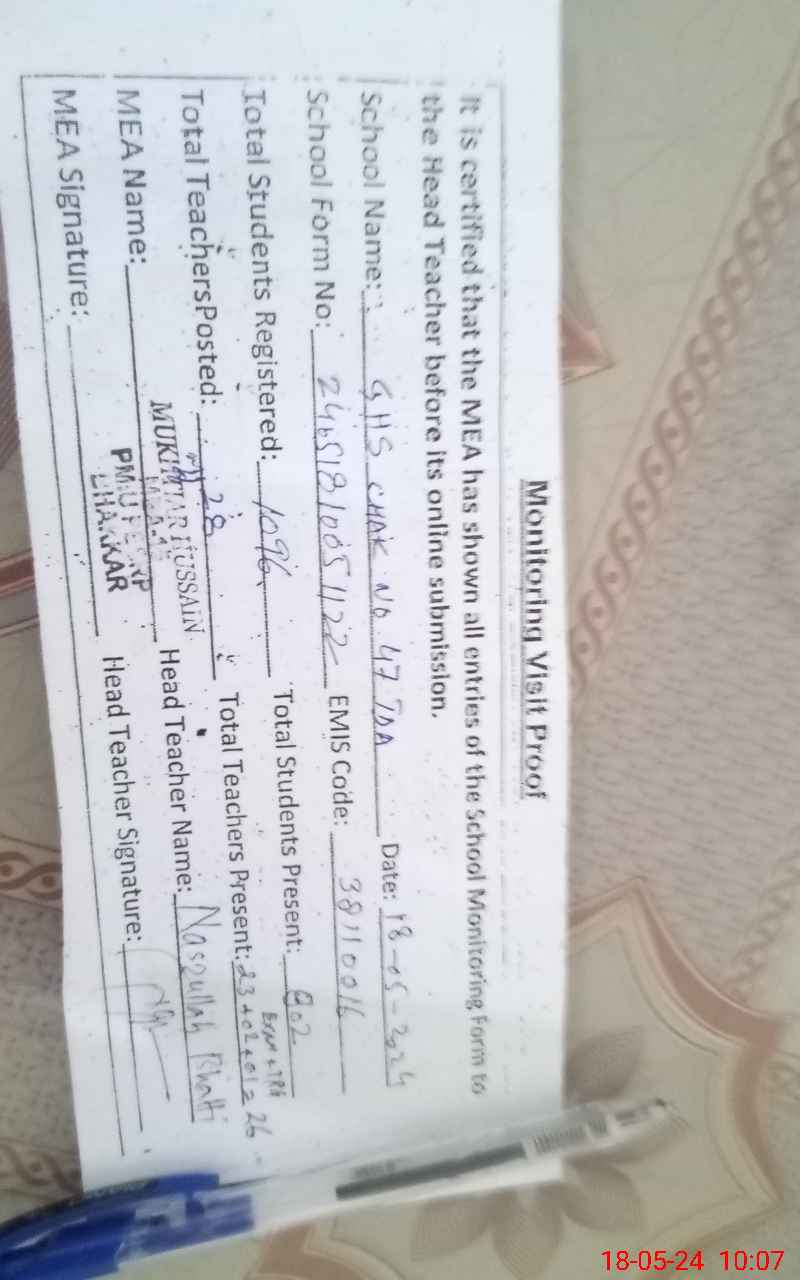 Monitoring Visit Proof
It is certified that the MEA has shown all entries of the School Monitoring Form to
the Head Teacher before its online submission.
School Name: GHS CHAK NO 47 TDA Date: 18-05-2024
School Form No: EMIS Code: 38110016
Total Students Registered: 1096 Total Students Present: 802
Total TeachersPosted: 28 Total Teachers Present: 23+02+01=26
MEA Name: MUKHTIAR HUSSAIN Head Teacher Name: Nasrullah Bhatti
MEA Signature: BHAKKAR Head Teacher Signature:
18-05-24 10:07